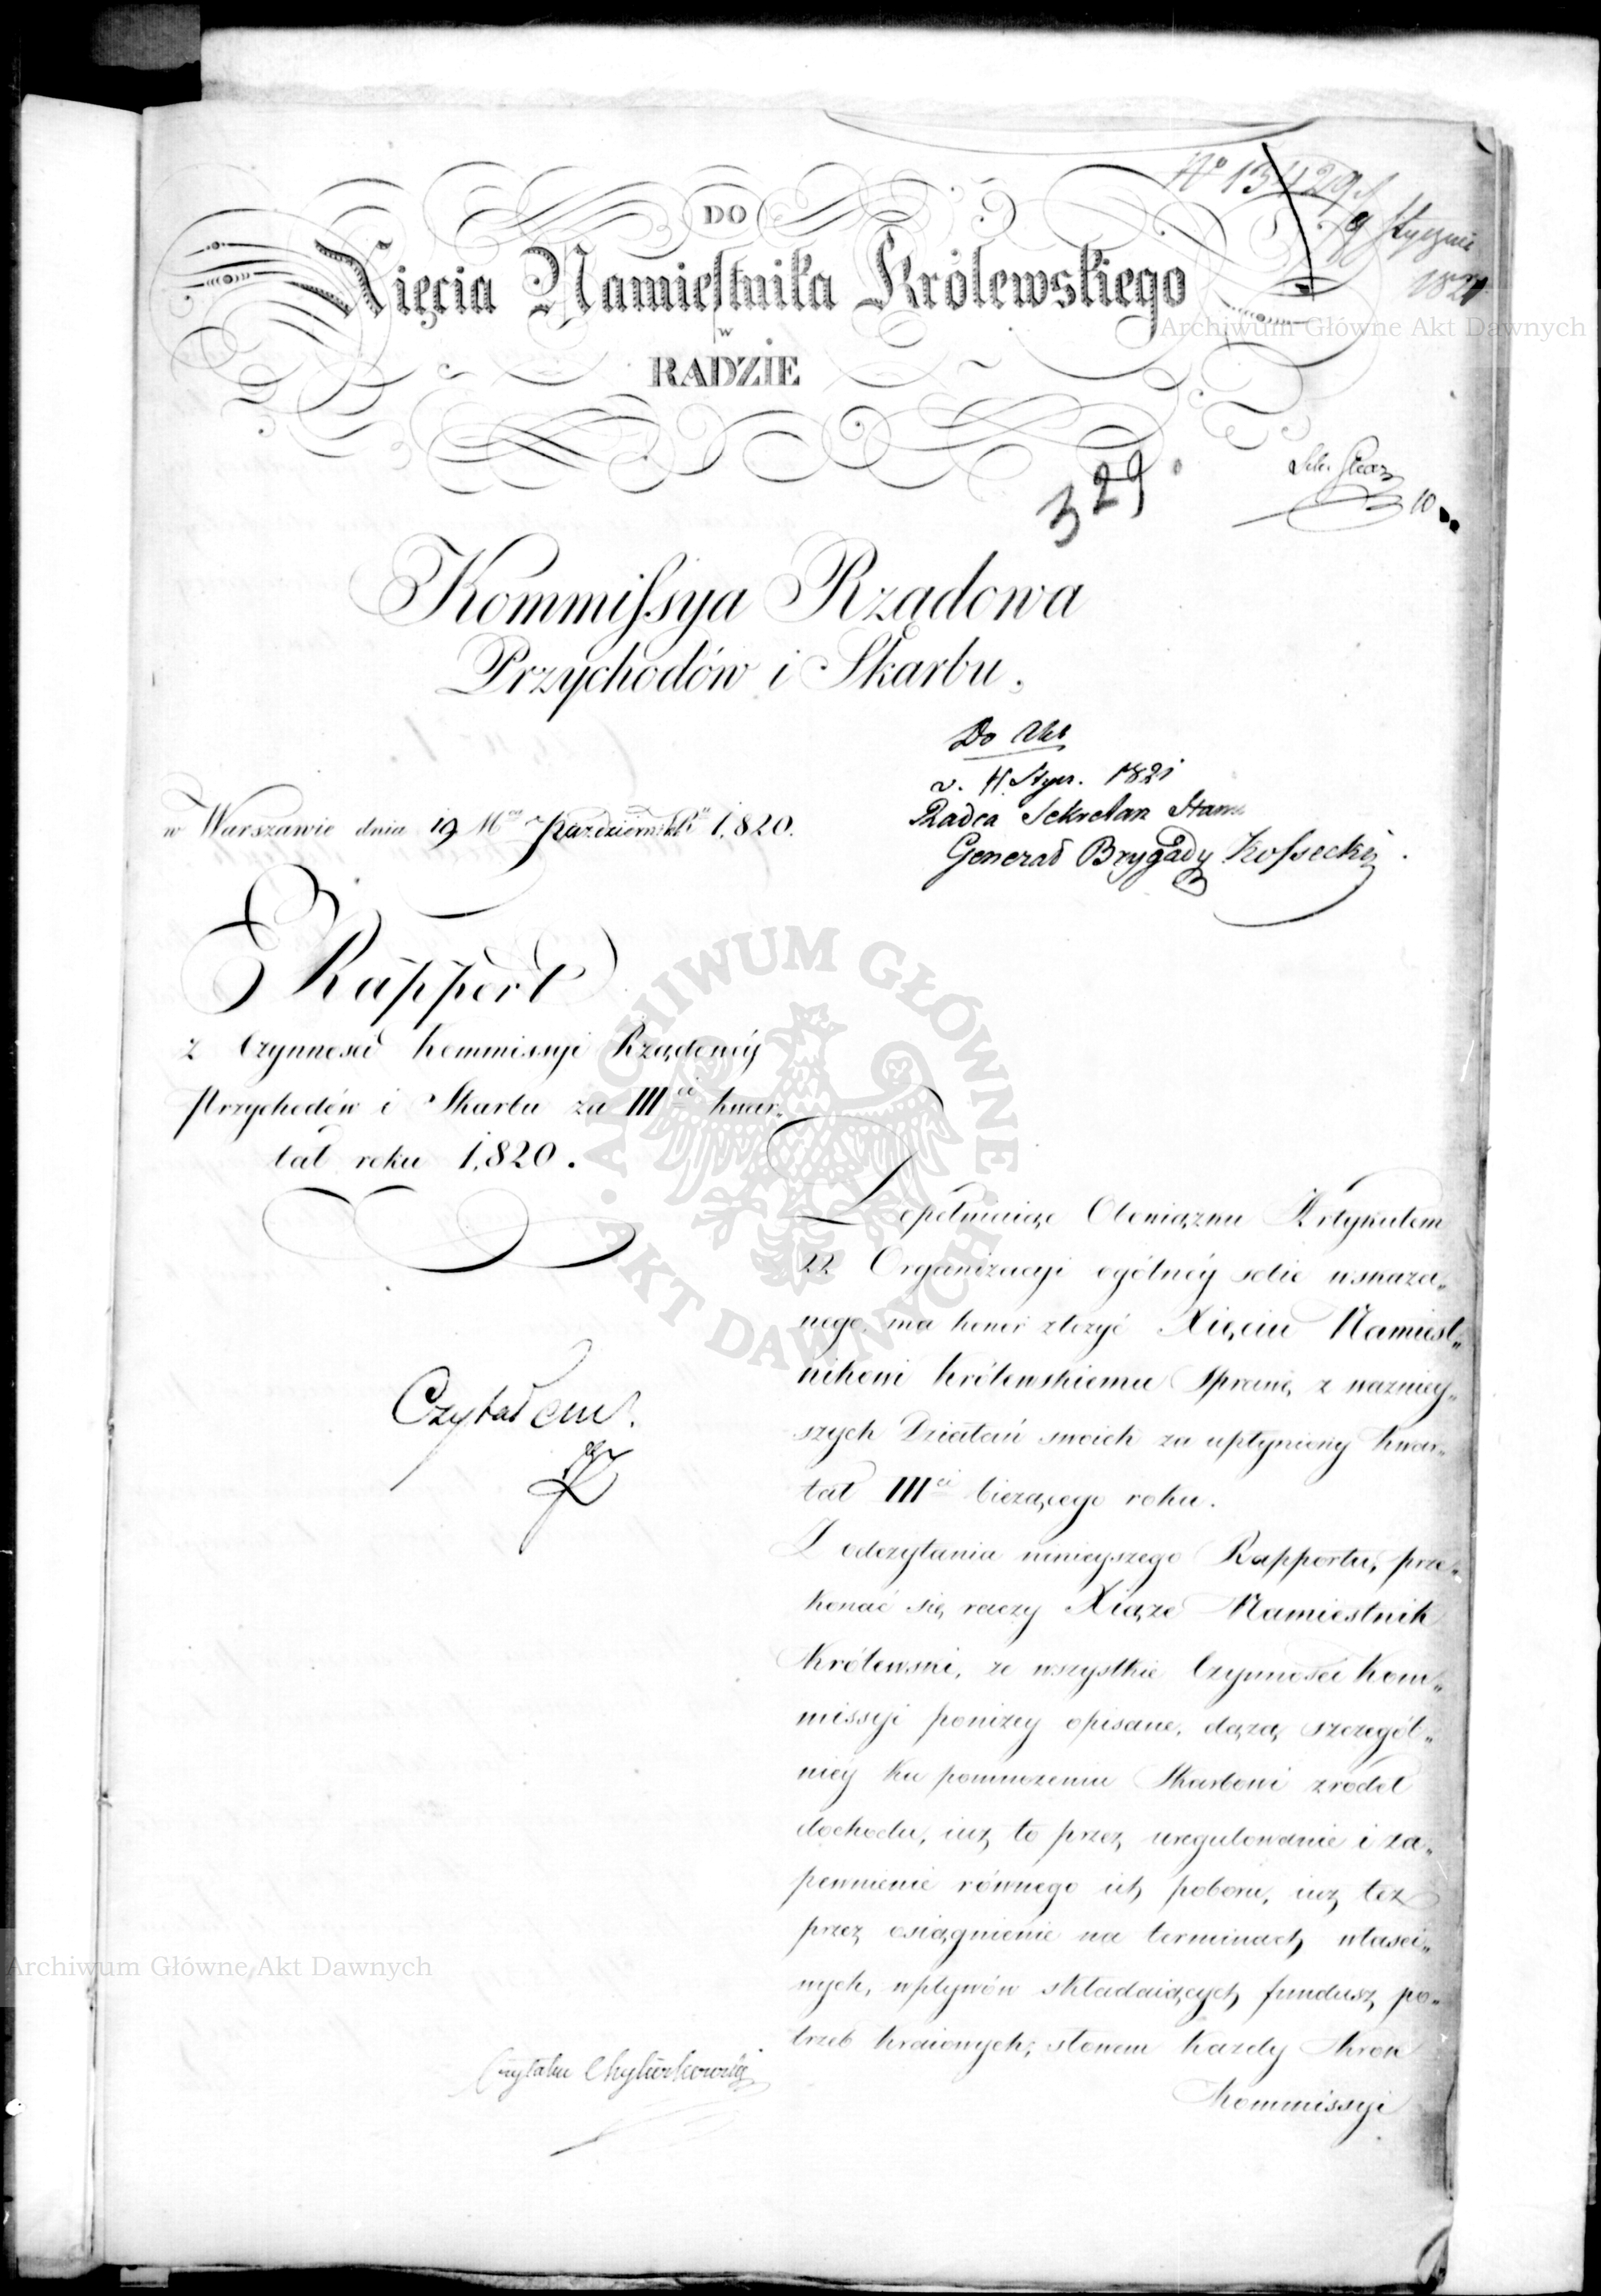 No 13429
9 Stycznia
1821
DO
Xięcia Namiestnika Królewskiego
w
RADZIE
Archiwum Główne Akt Dawnych
329.
10
Kommissya Rządowa
Przychodów i Skarbu.
Do Akt
d. 11 Stycz. 1821
Radca Sekretarz Stanu
Generał Brygady Kossecki.
w Warszawie dnia 19 Mca Października Rku 1,820.
Rapport
z Czynności Kommissyi Rządowéy
Przychodów i Skarbu za IIIci kwar„
tał roku 1,820.
ARCHIWUM GŁÓWNE AKT DAWNYCH
Dopełniaiąc Obowiązku Artykułem
22 Organizacyi ogólnéy sobie wskaza„
nego, ma honor złożyć Xięciu Namiest„
nikowi Królewskiemu Sprawę z ważniey„
szych Działań swoich za upłyniony kwar„
tał IIIci bieżącego roku.
Z odczytania ninieyszego Rapportu, prze„
konać się raczy Xiąże Namiestnik
Królewski, że wszystkie Czynności Kom„
missyi poniżey opisane, dążą szczegól„
niéy ku pomnożeniu Skarbowi zrodeł
dochodu, iuż to przez uregulowanie i za„
pewnienie równego ich poboru, iuż téż
przez osiągnienie na terminach właści„
wych, wpływów składaiących fundusz po„
trzeb kraiowych; słowem każdy krok
Kommissyi
Czytałem.
Archiwum Główne Akt Dawnych
Czytałem